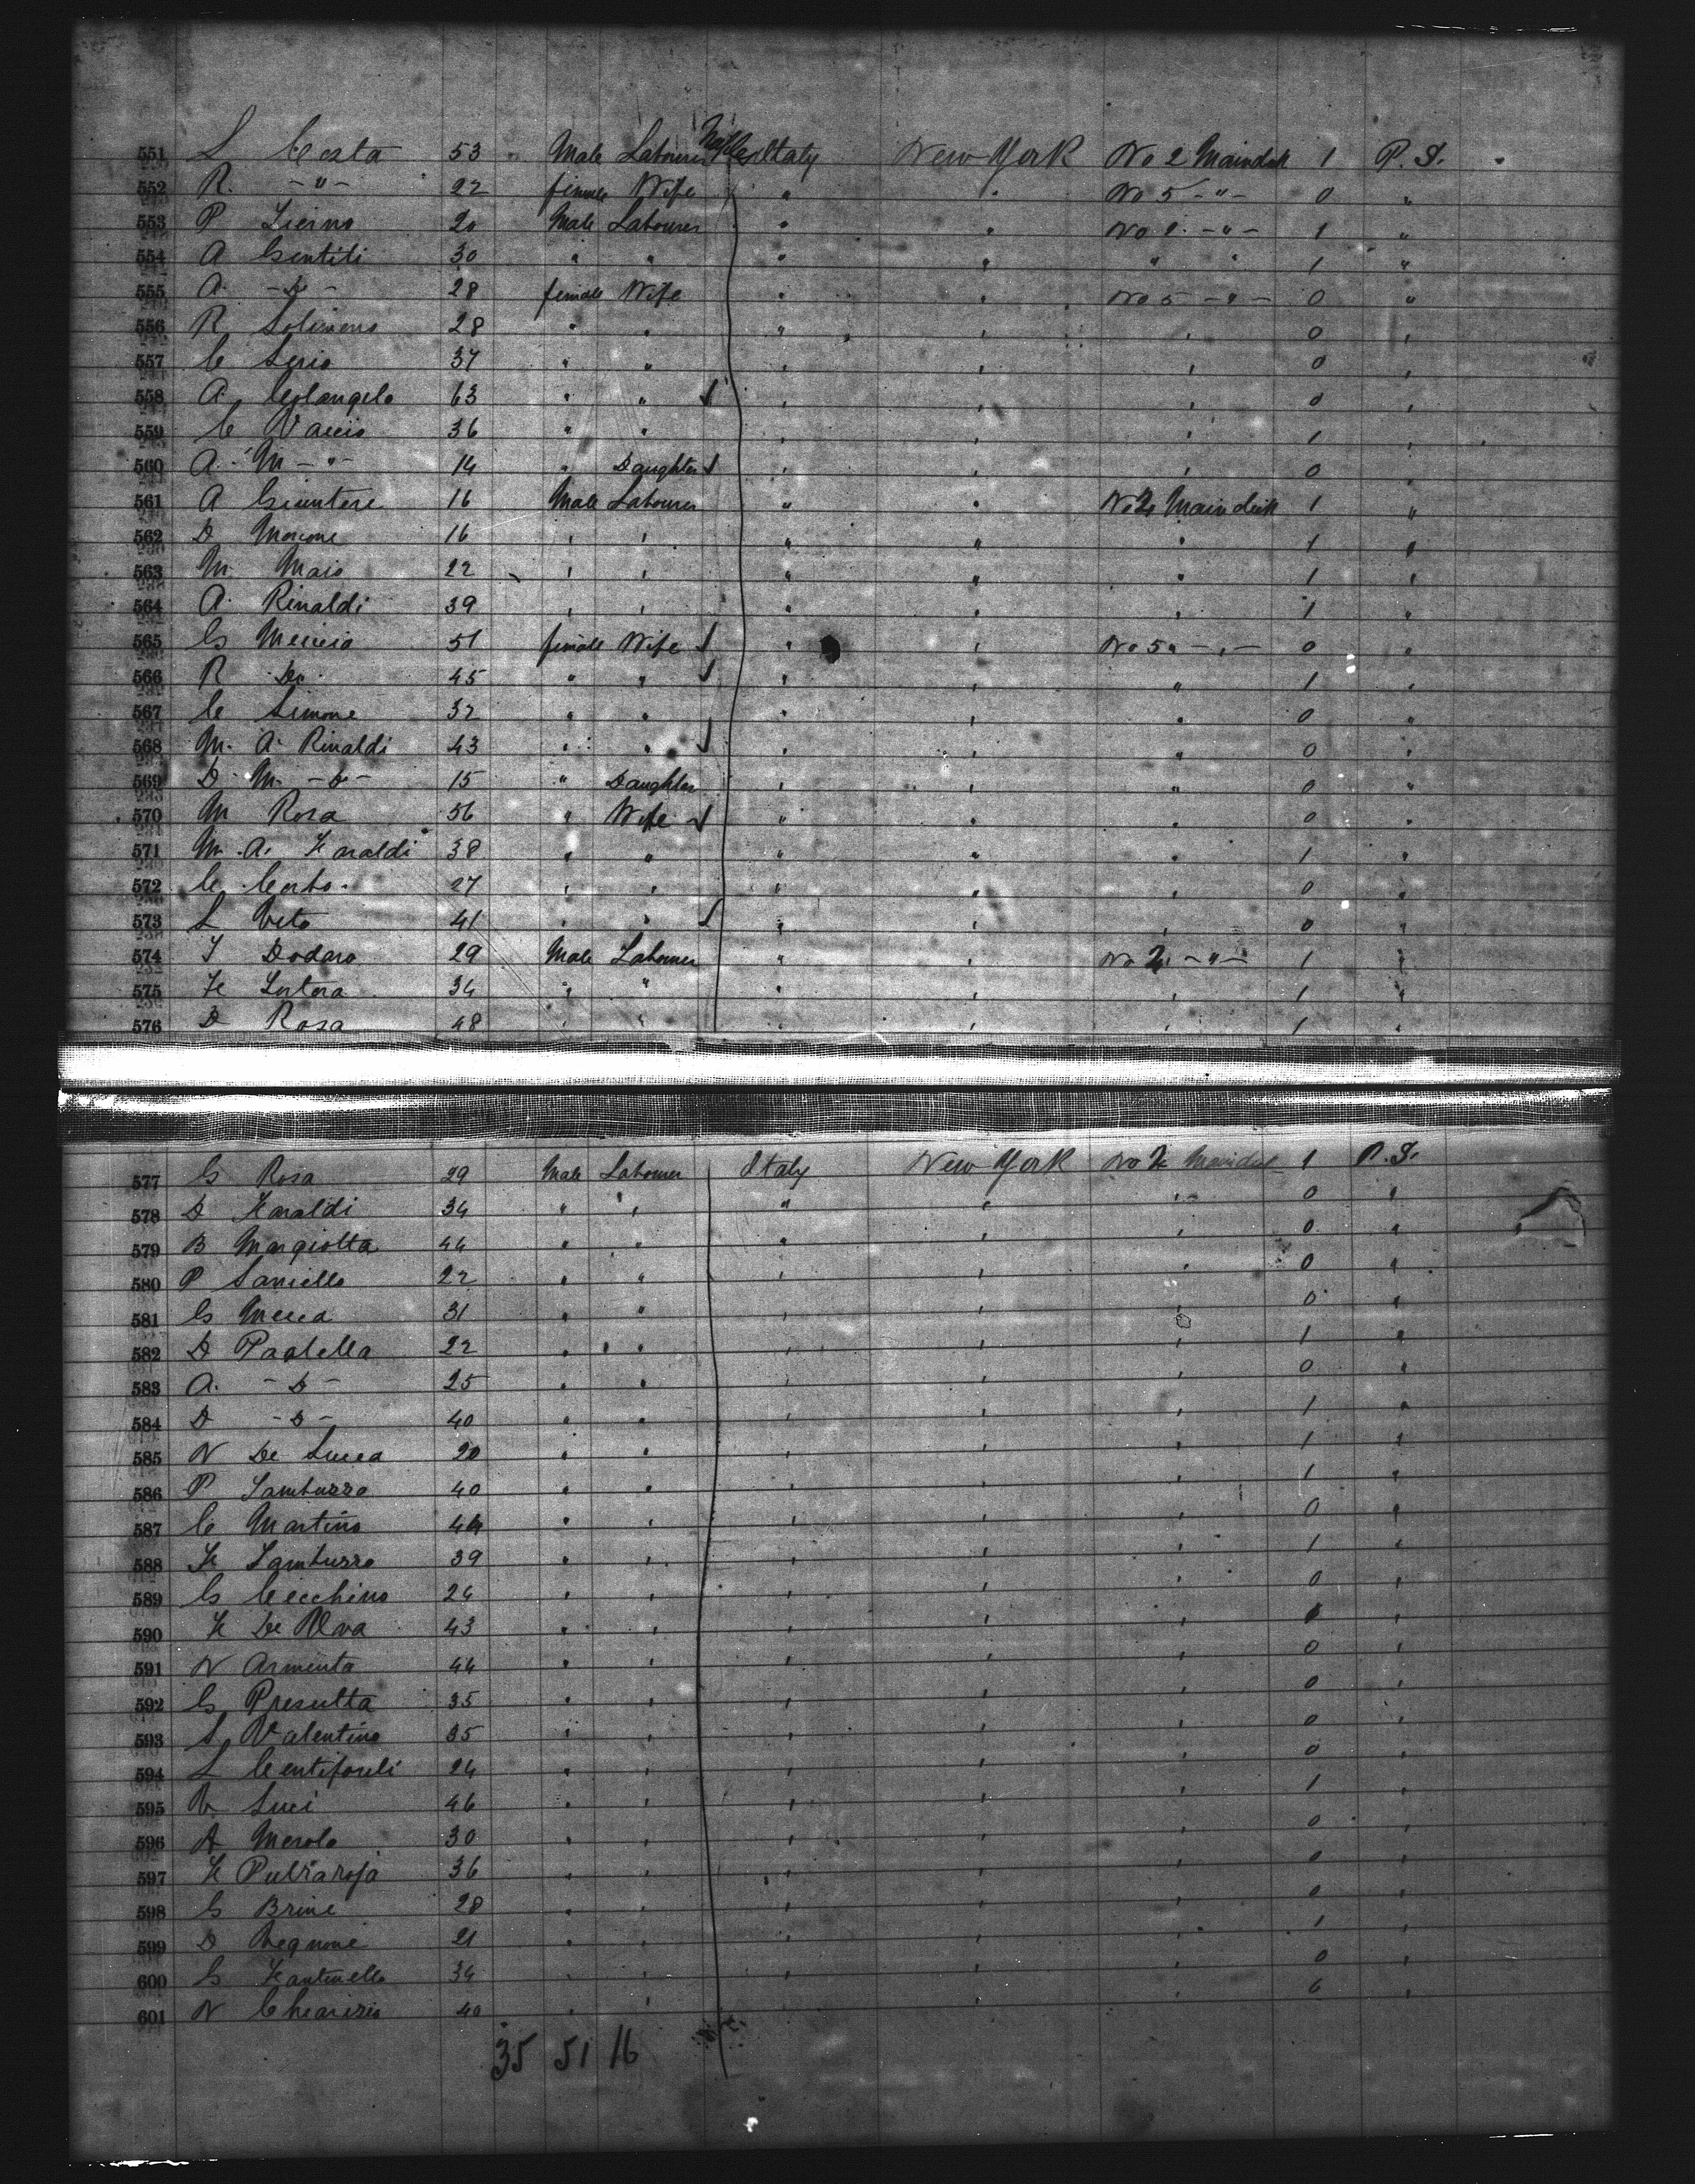 551 L Costa 53 Male Labourer Naples Italy New York No 2 Maindeck 1 P. S.
552 R. -"- 22 female Wife " " No 5 -"- 0 "
553 P Lierno 20 Male Labourer " " No 2 -"- 1 "
554 A Gentili 30 " " " " " " 1 "
555 A. -Do- 28 female Wife " " No 5 -"- 0 "
556 R. Solimeno 28 " " " " " 0 "
557 C Serio 37 " " " " " 0 "
558 A. Colangelo 63 " " " " " 0 "
559 C Vaccio 36 " " " " " 1 "
560 A. M -"- 14 " Daughter " " " 0 "
561 A 16 Male Labourer " " No 2 Maindeck 1 "
562 D Morcone 16 " " " " " 1 "
563 M. Maio 22 " " " " " 1 "
564 A. Rinaldi 39 " " " " " 1 "
565 G 51 female Wife " " No 5 " -"- 0 "
566 R Do 45 " " " " " 1 "
567 C Simone 32 " " " " " 0 "
568 M. A. Rinaldi 43 " " " " " 0 "
569 D. M. -Do- 15 " Daughter " " " 0 "
570 M Rosa 56 " Wife " " " 0 "
571 M. A. Faraldi 38 " " " " " 1 "
572 C. Cerbo. 27 " " " " " 0 "
573 L Vito 41 " " " " " 0 "
574 Dodaro 29 Male Labourer " " No 2 -"- 1 "
575 F Lertora 34 " " " " " 1 "
576 D Rosa 48 " " " " " 1 "
577 G Rosa 29 Male Labourer Italy New York No 2 Maindeck 1 P. S.
578 D Faraldi 34 " " " " " 0 "
579 B Margiotta 44 " " " " " 0 "
580 P Saniello 22 " " " " " 0 "
581 G Mecca 31 " " " " " 0 "
582 D Paolella 22 " " " " " 1 "
583 A. -Do- 25 " " " " " 0 "
584 D -Do- 40 " " " " " 1 "
585 N De Lucca 20 " " " " " 1 "
586 P Samburro 40 " " " " " 1 "
587 C Martino 44 " " " " " 0 "
588 F Samburro 39 " " " " " 1 "
589 G Cecchino 24 " " " " " 0 "
590 F De 43 " " " " " "
591 N Armenta 44 " " " " " 0 "
592 G Presutta 35 " " " " " 0 "
593 S Valentino 35 " " " " " 0 "
594 L 24 " " " " " 0 "
595 V Luci 46 " " " " " 1 "
596 A Merola 30 " " " " " 0 "
597 F 36 " " " " " 0 "
598 G Brini 28 " " " " " 0 "
599 D 21 " " " " " 1 "
600 G Fantinello 34 " " " " " 0 "
601 N 40 " " " " 0 "
35 51 16